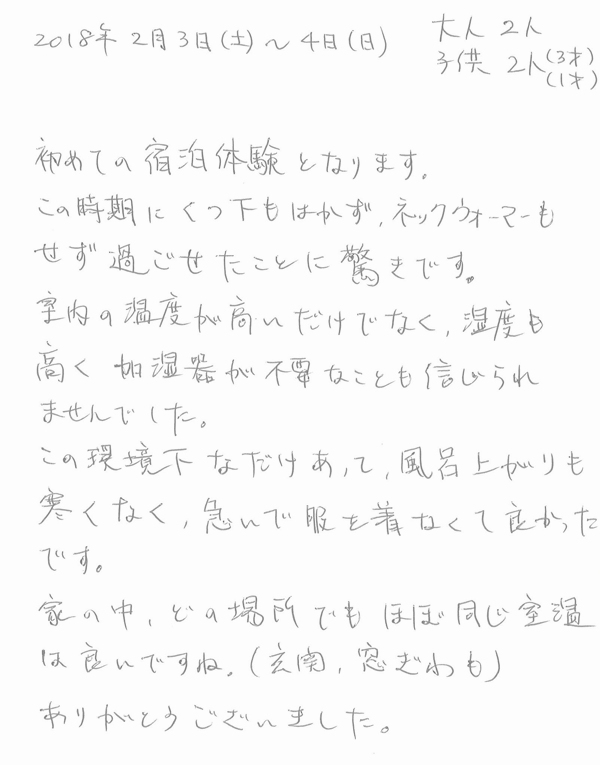 2018年 2月3日(土)～4日(日)
大人 2人
子供 2人(3才)
(1才)
初めての宿泊体験となります。
この時期にくつ下もはかず、ネックウォーマーも
せず過ごせたことに驚きです。
室内の温度が高いだけでなく、湿度も
高く加湿器が不要なことも信じられ
ませんでした。
この環境下なだけあって、風呂上がりも
寒くなく、急いで服を着なくて良かった
です。
家の中、どの場所でもほぼ同じ室温
は良いですね。(玄関、窓ぎわも)
ありがとうございました。